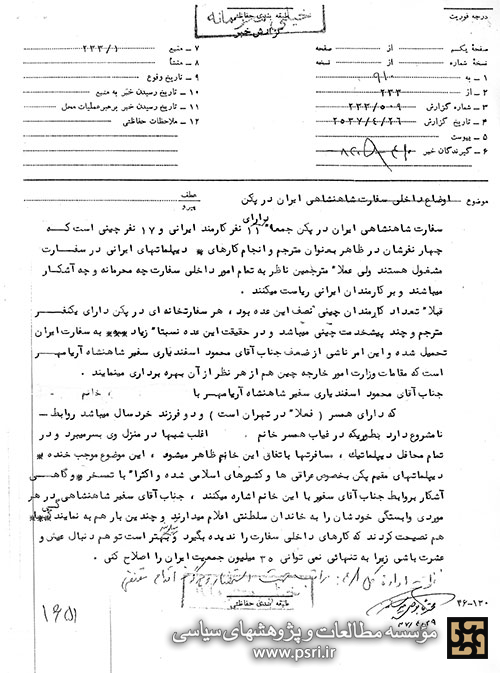 درجه فوریت
طبقه بندی حفاظتی
خیلی محرمانه
گزارش خبر
صفحهٔ یکم از صفحه
نسخهٔ شماره از نسخه
۱ - به ۹۱۰
۲ - از ۲۳۳
۳ - شماره گزارش ۲۳۳/۵۰۹
۴ - تاریخ گزارش ۲۵۳۷/۴/۲۶
۵ - پیوست
۶ - گیرندگان خبر
۷ - منبع ۲۳۳/۱
۸ - منشأ
۹ - تاریخ وقوع
۱۰ - تاریخ رسیدن خبر به منبع
۱۱ - تاریخ رسیدن خبر برهبر عملیات محل
۱۲ - ملاحظات حفاظتی
موضوع اوضاع داخلی سفارت شاهنشاهی ایران در پکن
عطف
پیرو
سفارت شاهنشاهی ایران در پکن جمعا" دارای ۱۱ نفر کارمند ایرانی و ۱۷ نفر چینی است که
چهار نفرشان در ظاهر بعنوان مترجم و انجام کارهای دیپلماتهای ایرانی در سفارت
مشغول هستند ولی عملا" مترجمین ناظر به تمام امور داخلی سفارت چه محرمانه و چه آشکار
میباشند و بر کارمندان ایرانی ریاست میکنند .
قبلا" تعداد کارمندان چینی نصف این عده بود ، هر سفارتخانه ای در پکن دارای یکنفر
مترجم و چند پیشخدمت چینی میباشد و در حقیقت این عده نسبتا" زیاد به سفارت ایران
تحمیل شده و این امر ناشی از ضعف جناب آقای محمود اسفندیاری سفیر شاهنشاه آریامهر
است که مقامات وزارت امور خارجه چین هم از هر نظر از آن بهره برداری مینمایند .
جناب آقای محمود اسفندیاری سفیر شاهنشاه آریامهر با ، خانم
که دارای همسر ( فعلا" در تهران است ) و دو فرزند خردسال میباشد روابط -
نامشروع دارد بطوریکه در غیاب همسر خانم . اغلب شبها در منزل وی بسرمیبرد و در
تمام محافل دیپلماتیک ، مسافرتها باتفاق این خانم ظاهر میشود ، این موضوع موجب خنده
دیپلماتهای مقیم پکن بخصوص عراقی ها و کشورهای اسلامی شده و اکثرا" با تمسخر و گاهی
آشکار بروابط جناب آقای سفیر با این خانم اشاره میکنند ، جناب آقای سفیر شاهنشاهی در هر
موردی وابستگی خودشان را به خاندان سلطنتی اعلام میدارند و چندین بار هم به نماینده
هم نصیحت کردند که کارهای داخلی سفارت را ندیده بگیرد و بهتر است تو هم دنبال عیش و
عشرت باشی زیرا به تنهائی نمی توانی ۳۵ میلیون جمعیت ایران را اصلاح کنی .
طبقه بندی حفاظتی
۳۶-۱۳۰
۱۹۵۱
مؤسسه مطالعات و پژوهشهای سیاسی
www.psri.ir